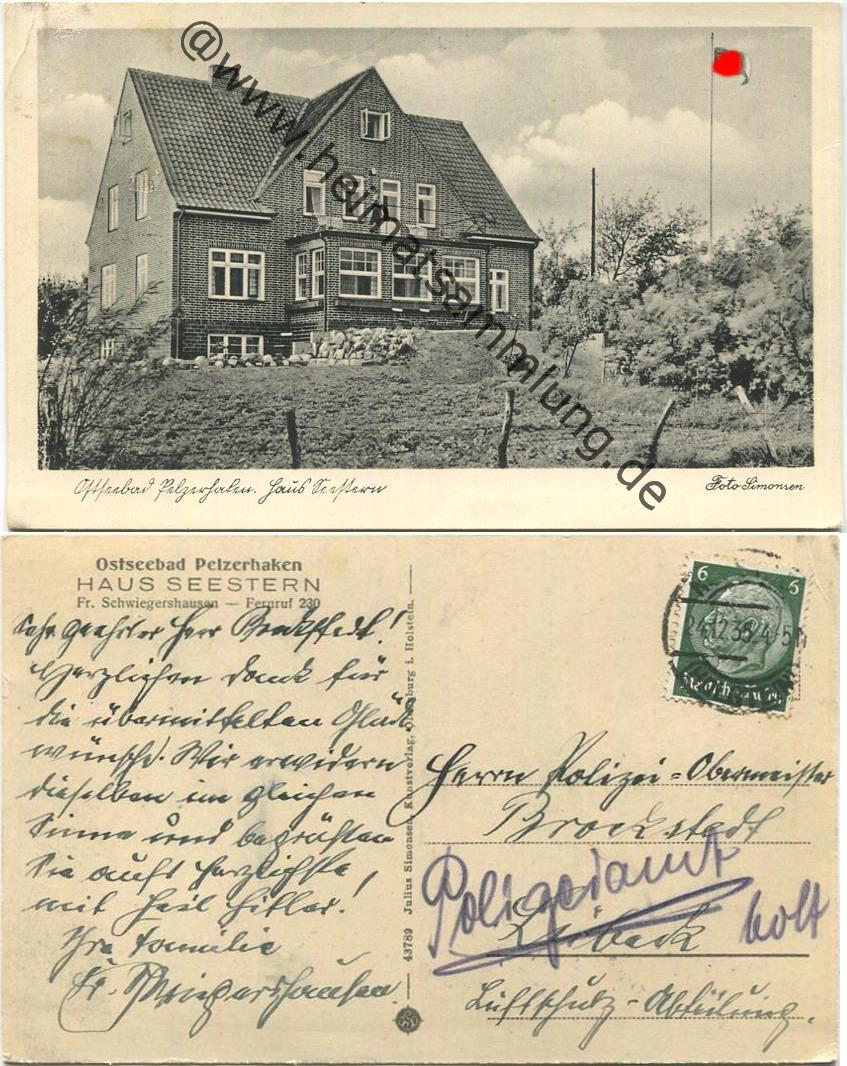 @www.heimatsammlung.de
Ostseebad Pelzerhaken. Haus Seestern
Foto Simonsen
Ostseebad Pelzerhaken
HAUS SEESTERN
Fr. Schwiegershausen — Fernruf 230
Sehr geehrter Herr Brockstedt!
Herzlichen Dank für
die übermittelten Glück
wünsche. Wir erwidern
dieselben im gleichen
Sinne und begrüßen
Sie aufs herzlichste,
mit Heil Hitler!
Ihre Familie
Fr. Schwiegershausen.
43789 Julius Simonsen, Kunstverlag, Oldenburg i. Holstein.
6 6
24.12.35
Herrn Polizei-Obermeister
Brockstedt
Polizeiamt
Lübeck
Luftschutz-Abteilung.